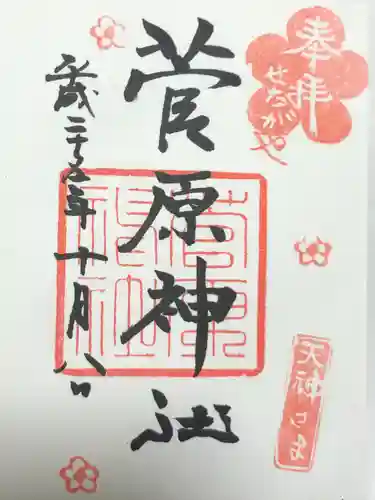 奉拝
せたがや
菅原神社
平成二十五年十月八日
菅原
神社
天神さま